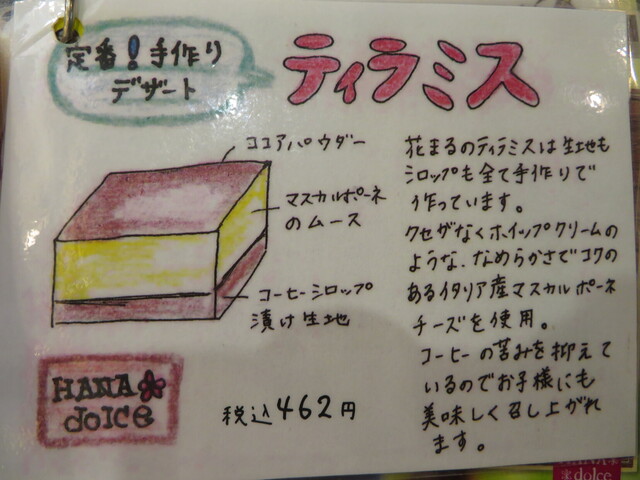 定番!手作り
デザート
ティラミス
ココアパウダー
マスカルポーネ
のムース
コーヒーシロップ
漬け生地
花まるのティラミスは生地も
シロップも全て手作りで
作っています。
クセがなくホイップクリームの
ような、なめらかさでコクの
あるイタリア産マスカルポーネ
チーズを使用。
コーヒーの苦みを抑えて
いるのでお子様にも
美味しく召し上がれ
ます。
HANA
dolce
税込462円
dolce